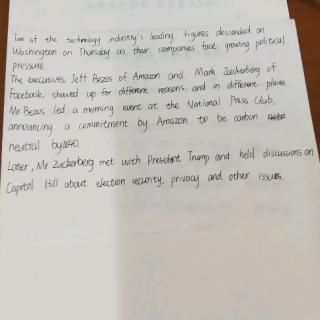 Two of the technology industry's leading figures descended on
Washington on Thursday as their companies face growing political
pressure.
The executives, Jeff Bezos of Amazon and Mark Zuckerberg of
Facebook, showed up for different reasons, and in different places.
Mr Bezos led a morning event at the National Press Club,
announcing a commitment by Amazon to be carbon
neutral by
Later, Mr. Zuckerberg met with President Trump and held discussions on
Capitol Hill about election security, privacy and other issues.